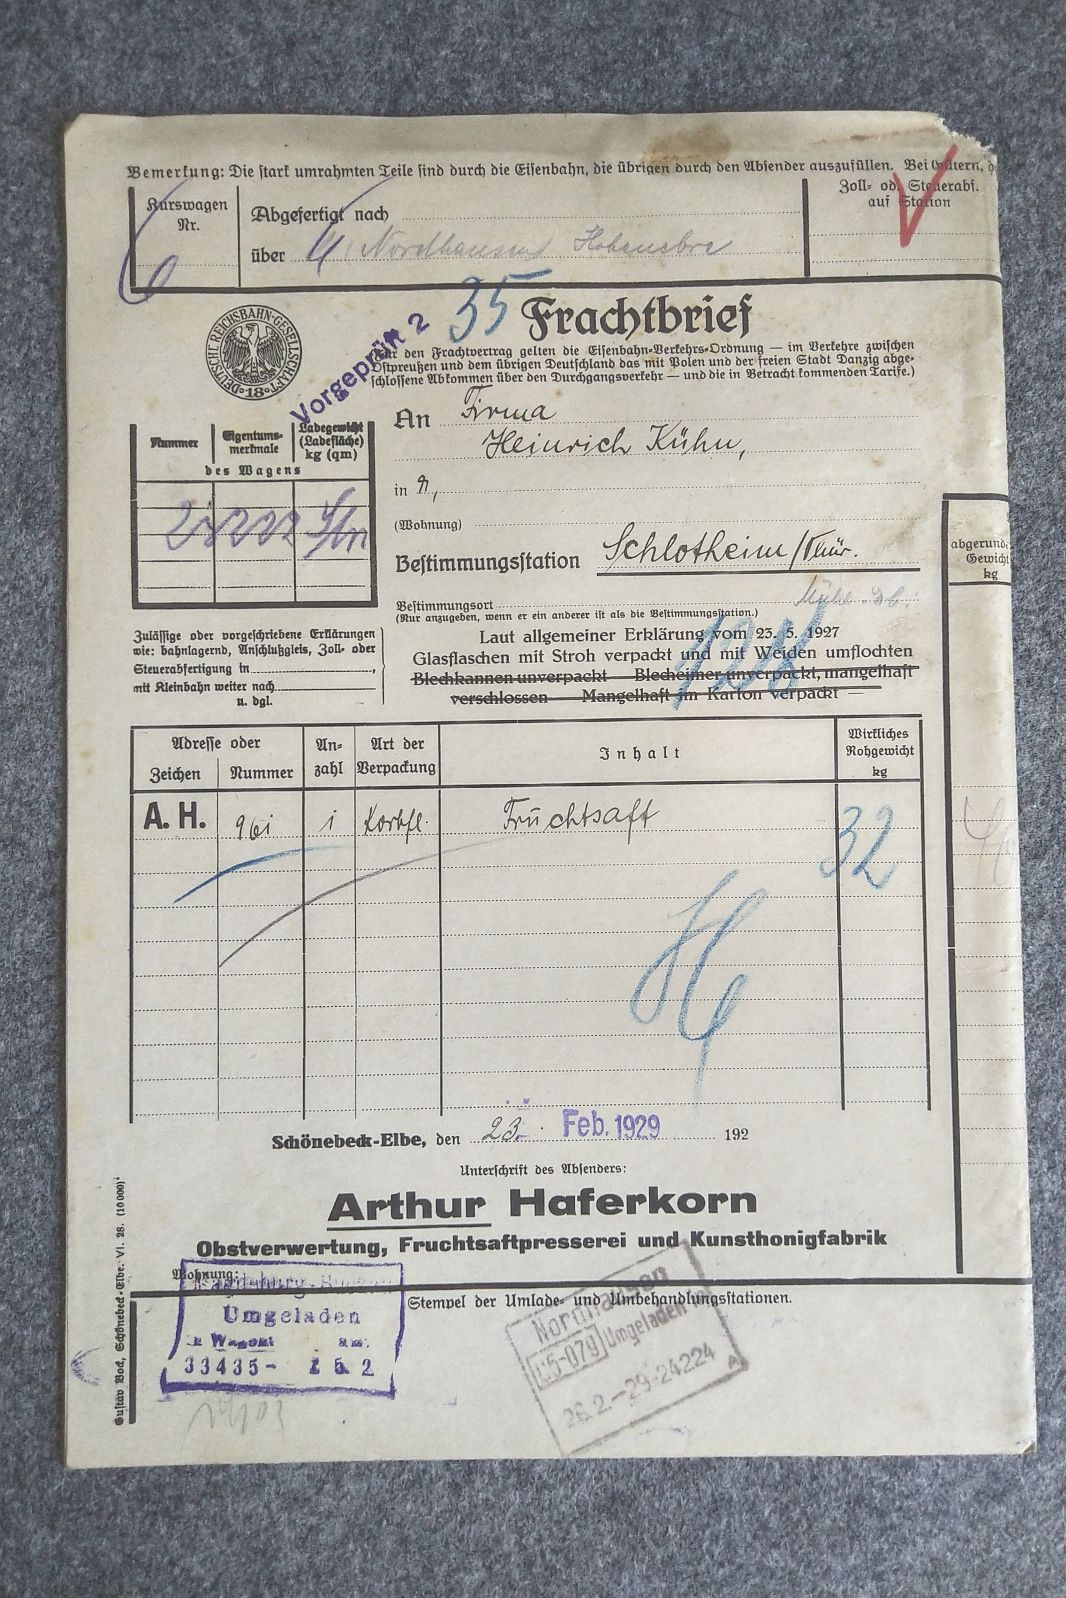 Bemerkung: Die stark umrahmten Teile sind durch die Eisenbahn, die übrigen durch den Absender auszufüllen. Bei Gütern, d
Kurswagen
Nr.
Abgefertigt nach
über Nordhausen Hohenebra
Zoll- od. Steuerabf.
auf Station
35
Frachtbrief
DEUTSCHE REICHSBAHN-GESELLSCHAFT
18
Vorgeprüft 2
(Für den Frachtvertrag gelten die Eisenbahn-Verkehrs-Ordnung — im Verkehre zwischen
Ostpreußen und dem übrigen Deutschland das mit Polen und der freien Stadt Danzig abge-
schlossene Abkommen über den Durchgangsverkehr — und die in Betracht kommenden Tarife.)
Nummer
Eigentums-
merkmale
Ladegewicht
(Ladefläche)
kg (qm)
des Wagens
An Firma
Heinrich Kühn,
in
(Wohnung)
Bestimmungsstation Schlotheim/Thür.
abgerund.
Gewicht
kg
Bestimmungsort
(Nur anzugeben, wenn er ein anderer ist als die Bestimmungsstation.)
Zulässige oder vorgeschriebene Erklärungen
wie: bahnlagernd, Anschlußgleis, Zoll- oder
Steuerabfertigung in
mit Kleinbahn weiter nach
u. dgl.
Laut allgemeiner Erklärung vom 23. 5. 1927
Glasflaschen mit Stroh verpackt und mit Weiden umflochten
Blechkannen unverpackt Blecheimer unverpackt, mangelhaft
verschlossen Mangelhaft im Karton verpackt —
Adresse oder
Zeichen Nummer
An-
zahl
Art der
Verpackung
Inhalt
Wirkliches
Rohgewicht
kg
A. H. 961 1 Korbfl. Fruchtsaft 32
Schönebeck-Elbe, den 23. Feb. 1929 192
Unterschrift des Absenders:
Arthur Haferkorn
Obstverwertung, Fruchtsaftpresserei und Kunsthonigfabrik
Wohnung:
Stempel der Umlade- und Umbehandlungsstationen.
Umgeladen
Wagen: am:
33435-
Nordhausen
Umgeladen
26.2.-29-24224
Gustav Bock, Schönebeck-Elbe. VI. 28. (10 000)